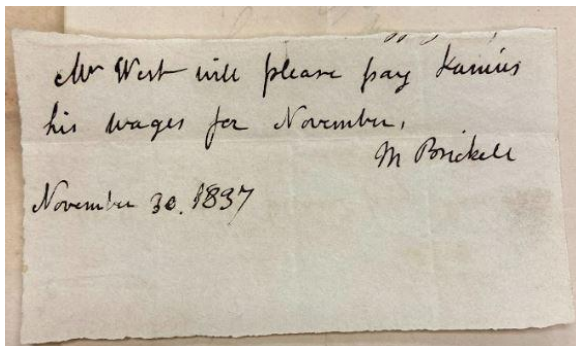 Mr West will please pay
his wages for November,
M Brickell
November 30. 1837